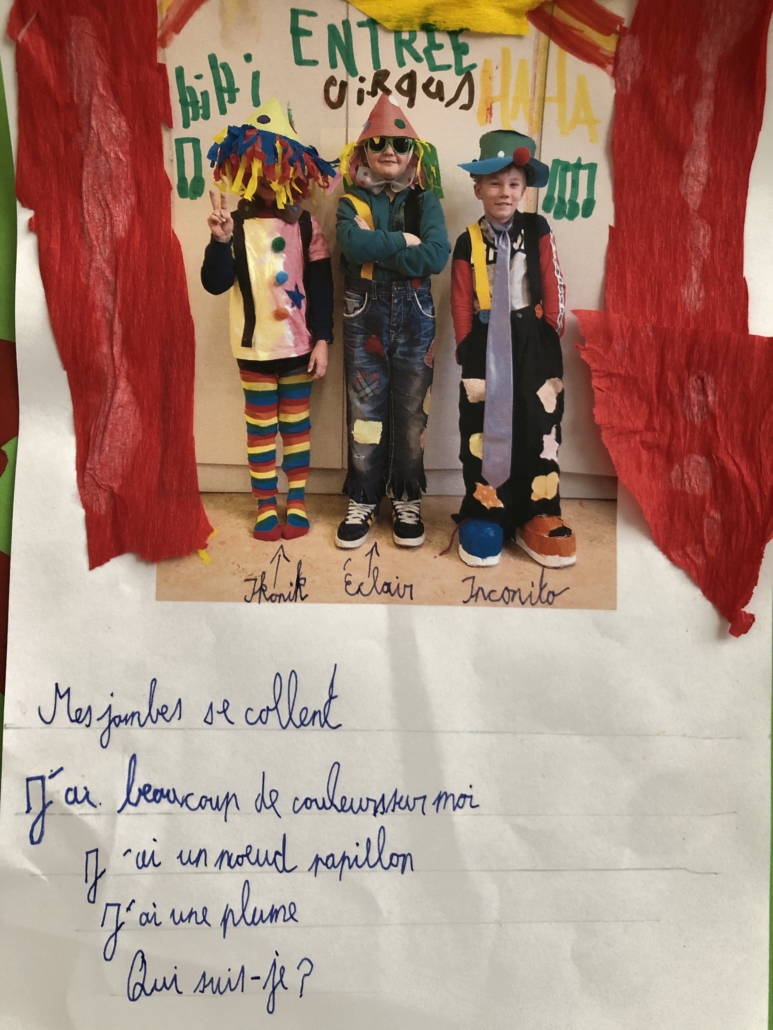 ENTREE
HiHi
CIRQUS
HAHA
Ikonik
Éclair
Inconito
Mes jambes se collent
J'ai beaucoup de couleurs sur moi
J'ai un nœud papillon
J'ai une plume
Qui suis-je?